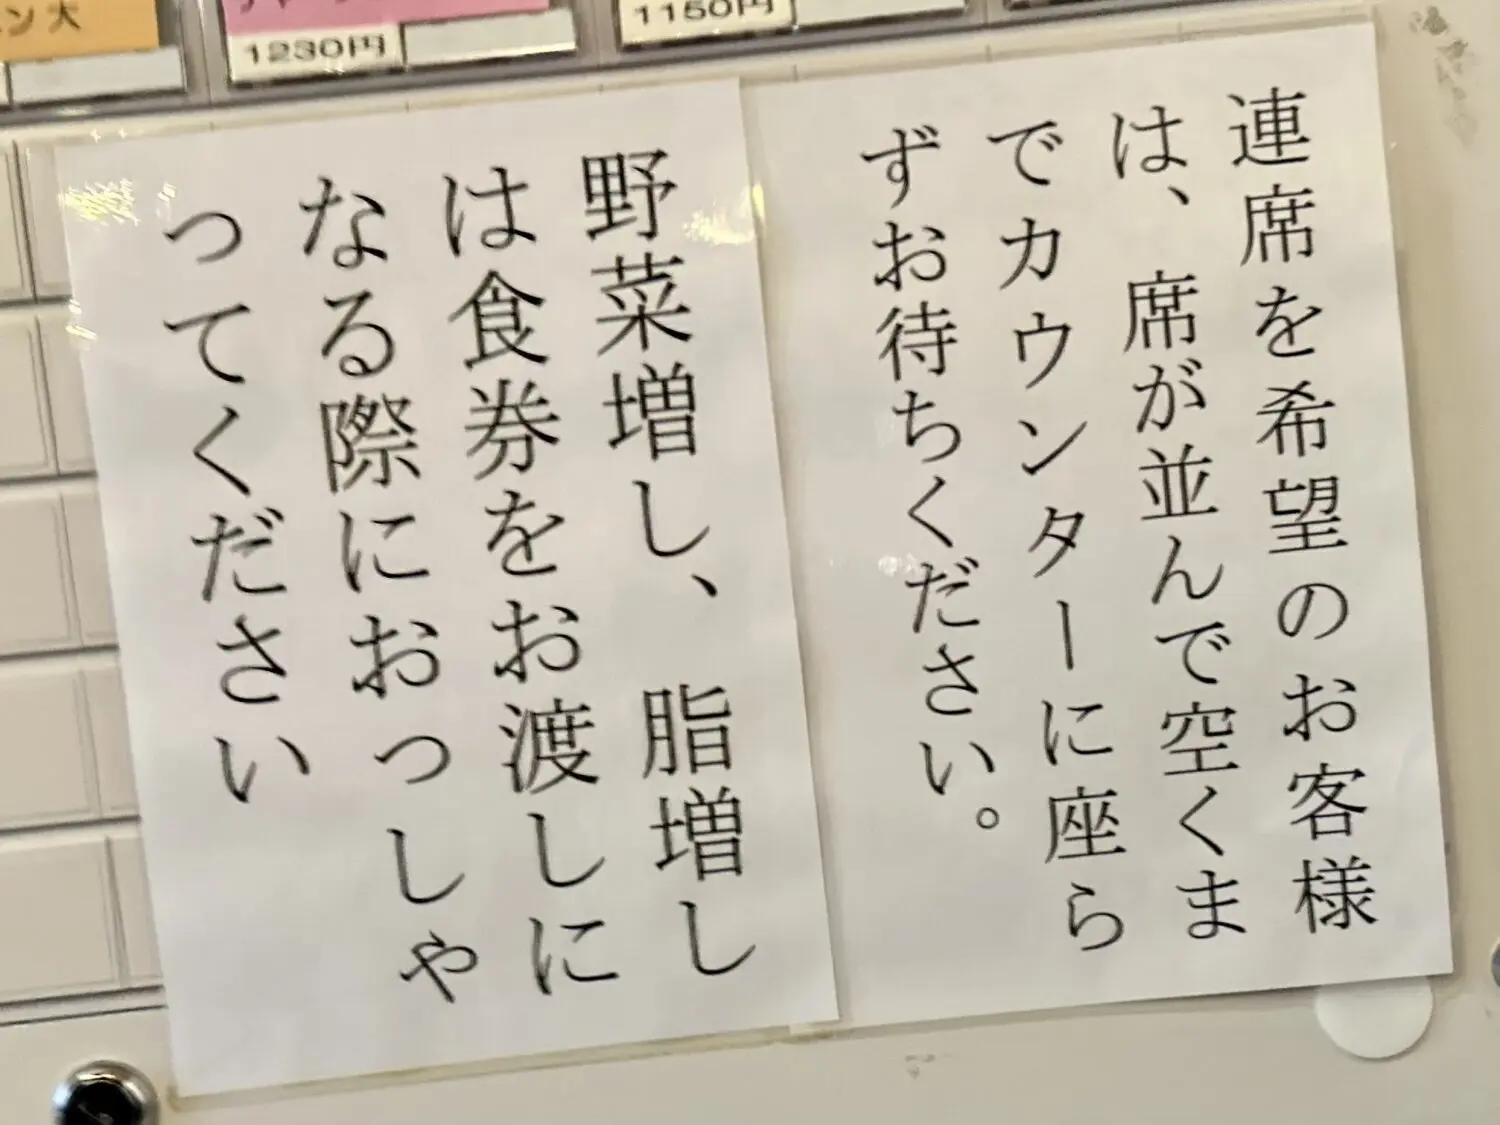 ン大
1230円
1150円
連席を希望のお客様
は、席が並んで空くま
でカウンターに座ら
ずお待ちください。
野菜増し、脂増し
は食券をお渡しに
なる際におっしゃ
ってください